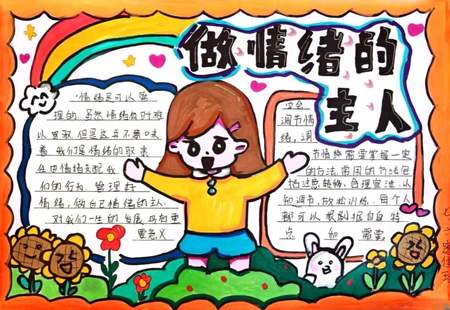 做情绪的
主人
情绪是可以管
理的,虽然情绪有时难
以控制,但是这并不意味
着我们是情绪的奴隶
任由情绪支配我
们的行为,管理好
情绪,做自己情绪的主人,
对我们一生的发展均有重
要意义
学会
调节情
绪,调
节情绪需要掌握一定
的方法,常用的方法包
括注意转移,合理宣泄,认
知调节,放松训练,每个人
都可以根据自身特
点 和 需要